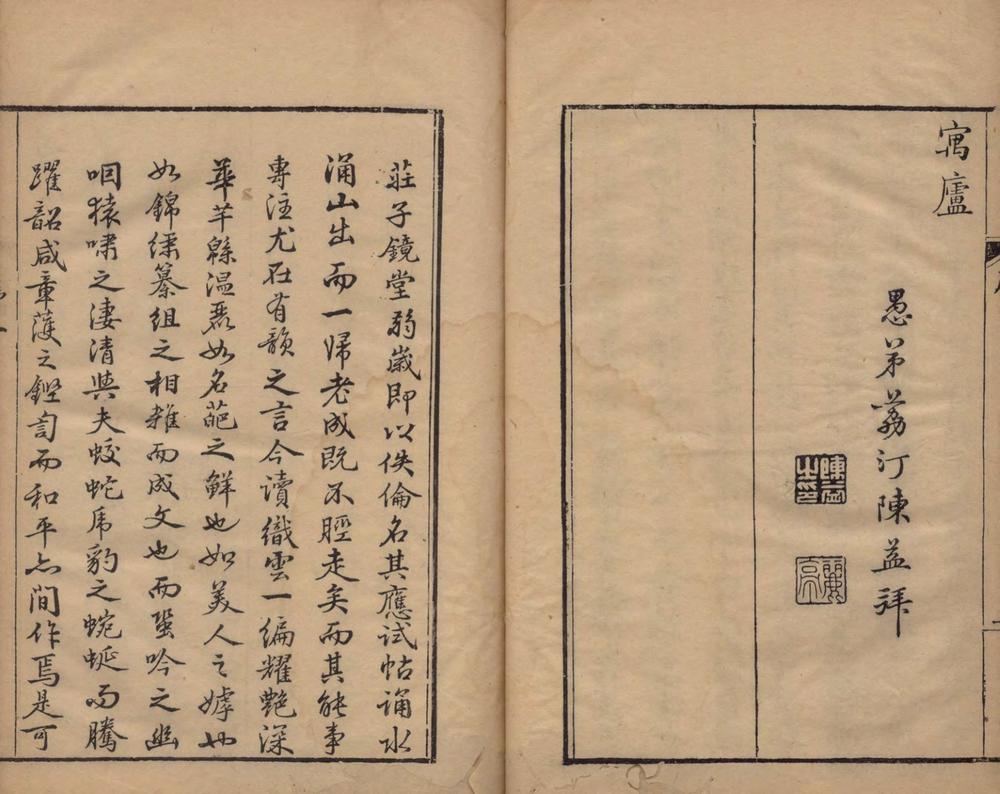 寓廬
愚弟荔汀陳益拜
陳益之印
莊子鏡堂弱歲即以佚倫名其應試帖誦水
涌山出而一歸老成既不脛走矣而其能事
專注尤在有韻之言今讀織雲一編耀艷深
華芊緜温麗如名葩之鮮也如美人之嫭也
如錦繻纂組之相雜而成文也而蛩吟之幽
咽猿嘯之淒清與夫蛟蛇虎豹之蜿蜒而騰
躍韶咸章頀之鏗訇而和平亦間作焉是可